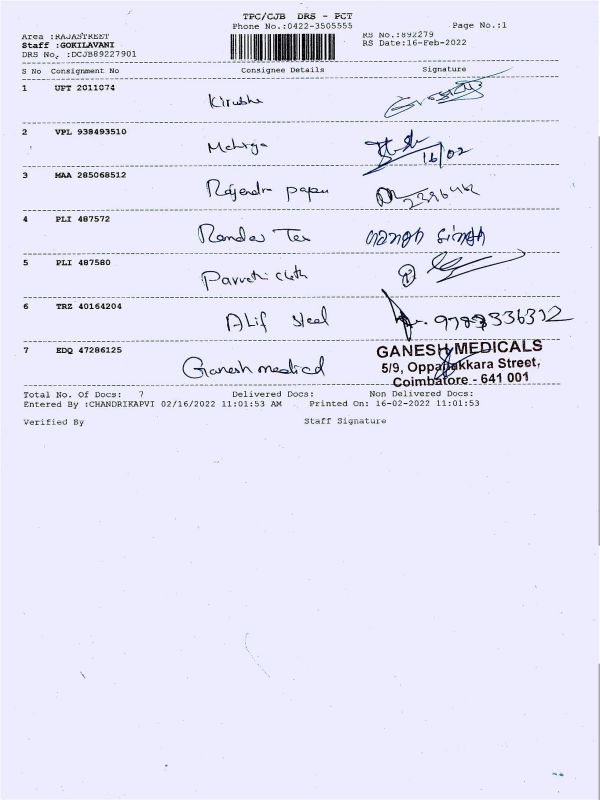 TPC/CJB DRS - PCT
Phone No.:0422-3505555 Page No.:1
Area :RAJASTREET RS No.:892279
Staff :GOKILAVANI RS Date:16-Feb-2022
DRS No. :DCJB89227901
S No Consignment No Consignee Details Signature
1 UPT 2011074
Kirubha
2 VPL 938493510
16/02
3 MAA 285068512
Rajendra papen
4 PLI 487572
5 PLI 487580
Parvathi cloth
6 TRZ 40164204
Alif steel
7 EDQ 47286125
Ganesh medical
GANESH MEDICALS
5/9, Oppanakkara Street,
Coimbatore - 641 001
Total No. Of Docs: 7 Delivered Docs: Non Delivered Docs:
Entered By :CHANDRIKAPVI 02/16/2022 11:01:53 AM Printed On: 16-02-2022 11:01:53
Verified By Staff Signature